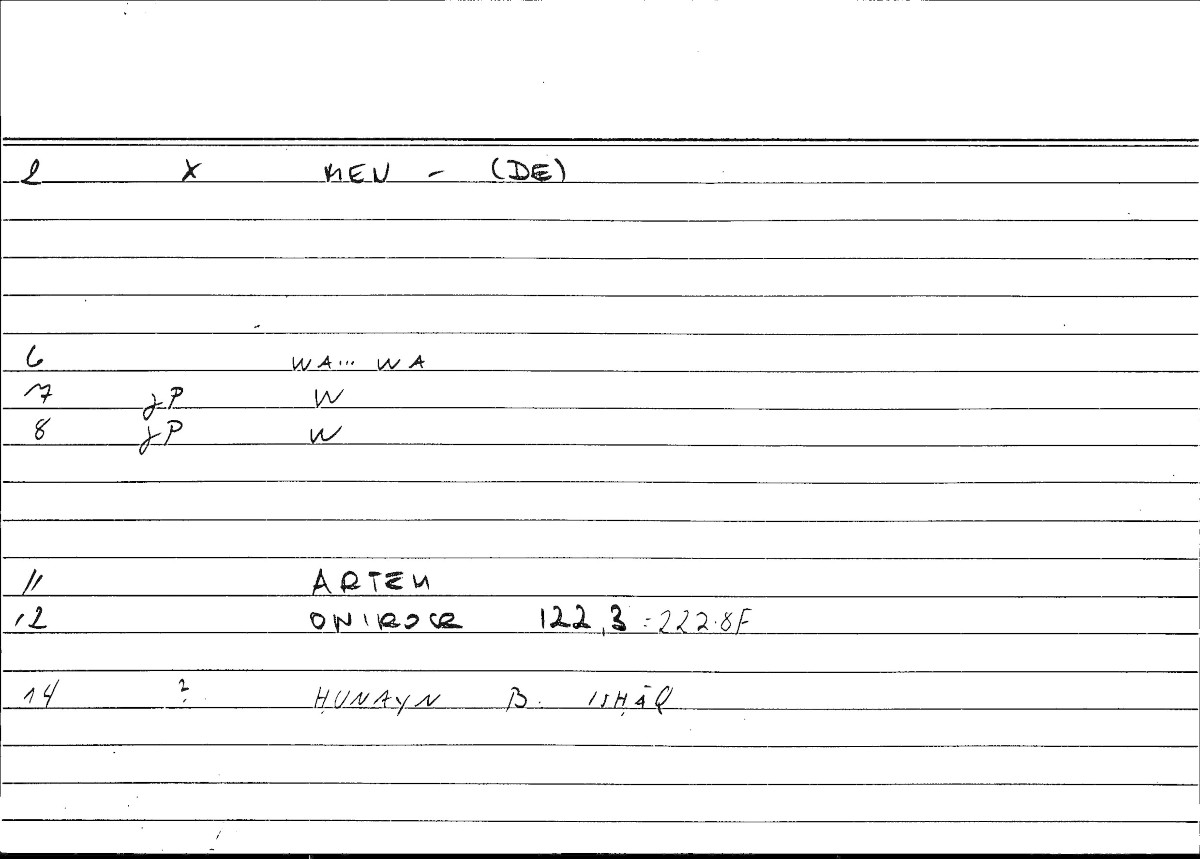 2 X MEN - (DE)
6 WA... WA
7 γP W
8 γP W
11 ARTEM
12 ONIROCR 122,3 = 222.8F
14 ? ḤUNAYN B. ISḤĀQ